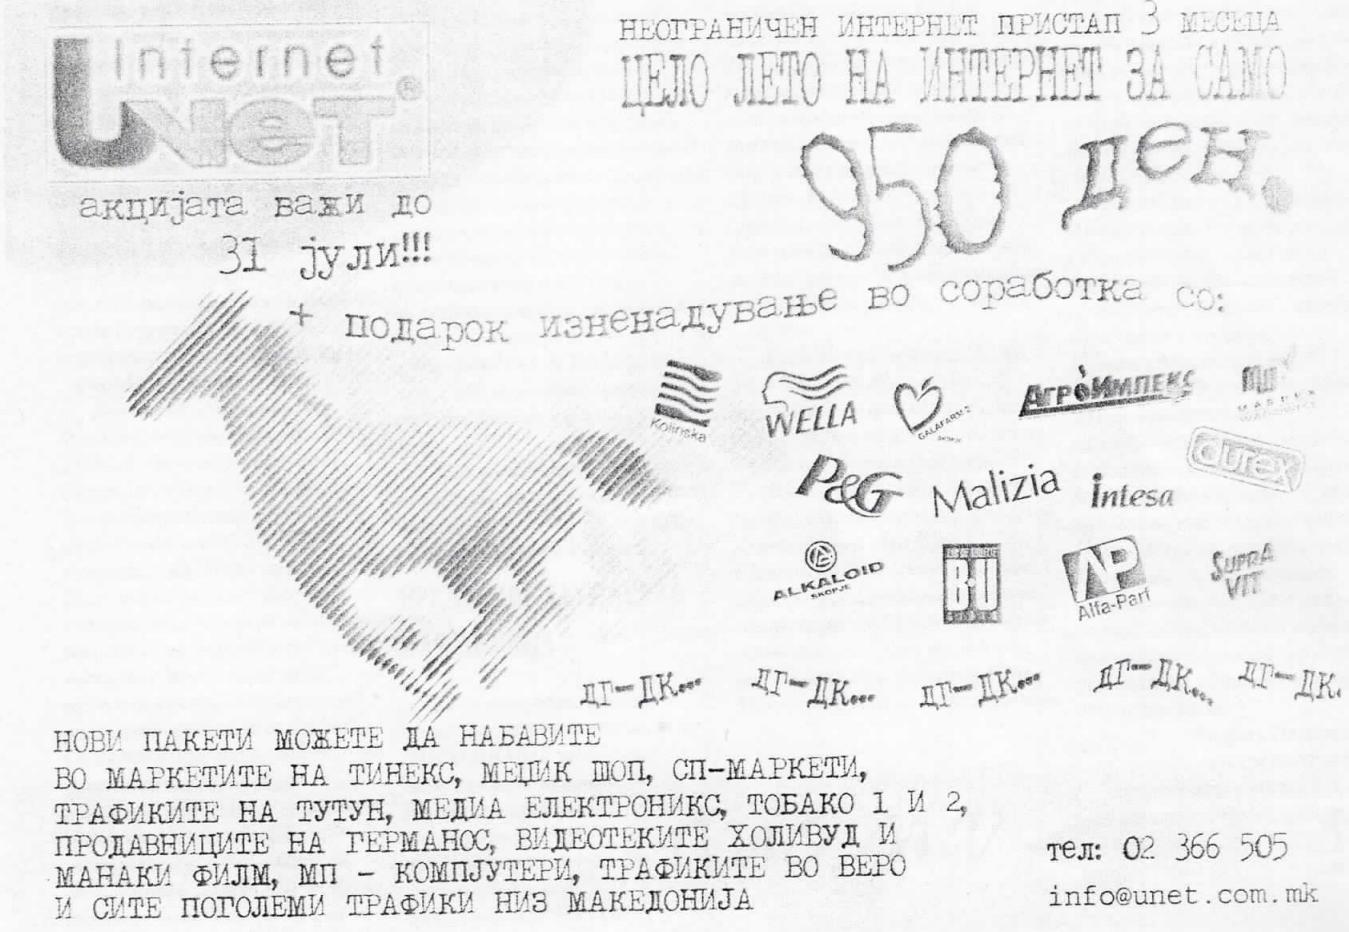 Internet
UNET®
акцијата важи до
31 јули!!!
НЕОГРАНИЧЕН ИНТЕРНЕТ ПРИСТАП 3 МЕСЕЦА
ЦЕЛО ЛЕТО НА ИНТЕРНЕТ ЗА САМО
950 ден.
+ подарок изненадување во соработка со:
Kolinska
WELLA
GALAFARM
АГРОИМПЕКС
durex
P&G
Malizia
intesa
ALKALOID
SKOPJE
B-U
AP
Alfa-Parf
SUPRA
VIT
ДГ-ДК... ДГ-ДК... ДГ-ДК... ДГ-ДК... ДГ-ДК.
НОВИ ПАКЕТИ МОЖЕТЕ ДА НАБАВИТЕ
ВО МАРКЕТИТЕ НА ТИНЕКС, МЕЏИК ШОП, СП-МАРКЕТИ,
ТРАФИКИТЕ НА ТУТУН, МЕДИА ЕЛЕКТРОНИКС, ТОБАКО 1 И 2,
ПРОДАВНИЦИТЕ НА ГЕРМАНОС, ВИДЕОТЕКИТЕ ХОЛИВУД И
МАНАКИ ФИЛМ, МП - КОМПЈУТЕРИ, ТРАФИКИТЕ ВО ВЕРО
И СИТЕ ПОГОЛЕМИ ТРАФИКИ НИЗ МАКЕДОНИЈА
тел: 02 366 505
info@unet.com.mk